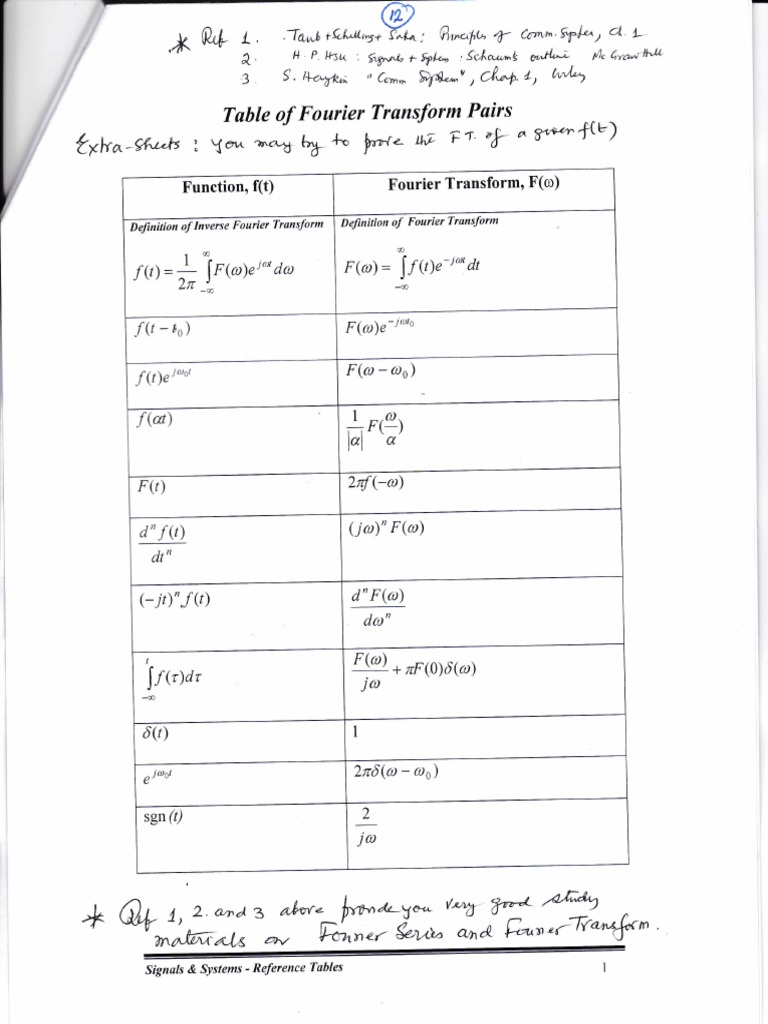 12
* Ref 1. Taub + Schilling + Saha: Principles of Comm. System, Ch. 1
2. H. P. Hsu: Signals + System. Schaum's outline McGraw Hill
3. S. Haykin "Comm System", Chap. 1, Wiley
Table of Fourier Transform Pairs
Extra-Sheets: You may try to prove the F.T. of a given f(t)
Function, f(t) Fourier Transform, F(ω)
Definition of Inverse Fourier Transform Definition of Fourier Transform
f(t) = 1/2π ∫_{-∞}^{∞} F(ω)e^{jωt} dω F(ω) = ∫_{-∞}^{∞} f(t)e^{-jωt} dt
f(t − t₀) F(ω)e^{-jωt₀}
f(t)e^{jω₀t} F(ω − ω₀)
f(αt) 1/|α| F(ω/α)
F(t) 2πf(−ω)
dⁿf(t)/dtⁿ (jω)ⁿ F(ω)
(−jt)ⁿ f(t) dⁿF(ω)/dωⁿ
∫_{-∞}^{t} f(τ)dτ F(ω)/jω + πF(0)δ(ω)
δ(t) 1
e^{jω₀t} 2πδ(ω − ω₀)
sgn (t) 2/jω
* Ref 1, 2. and 3 above provide you very good study
materials on Fourier Series and Fourier Transform.
Signals & Systems - Reference Tables 1